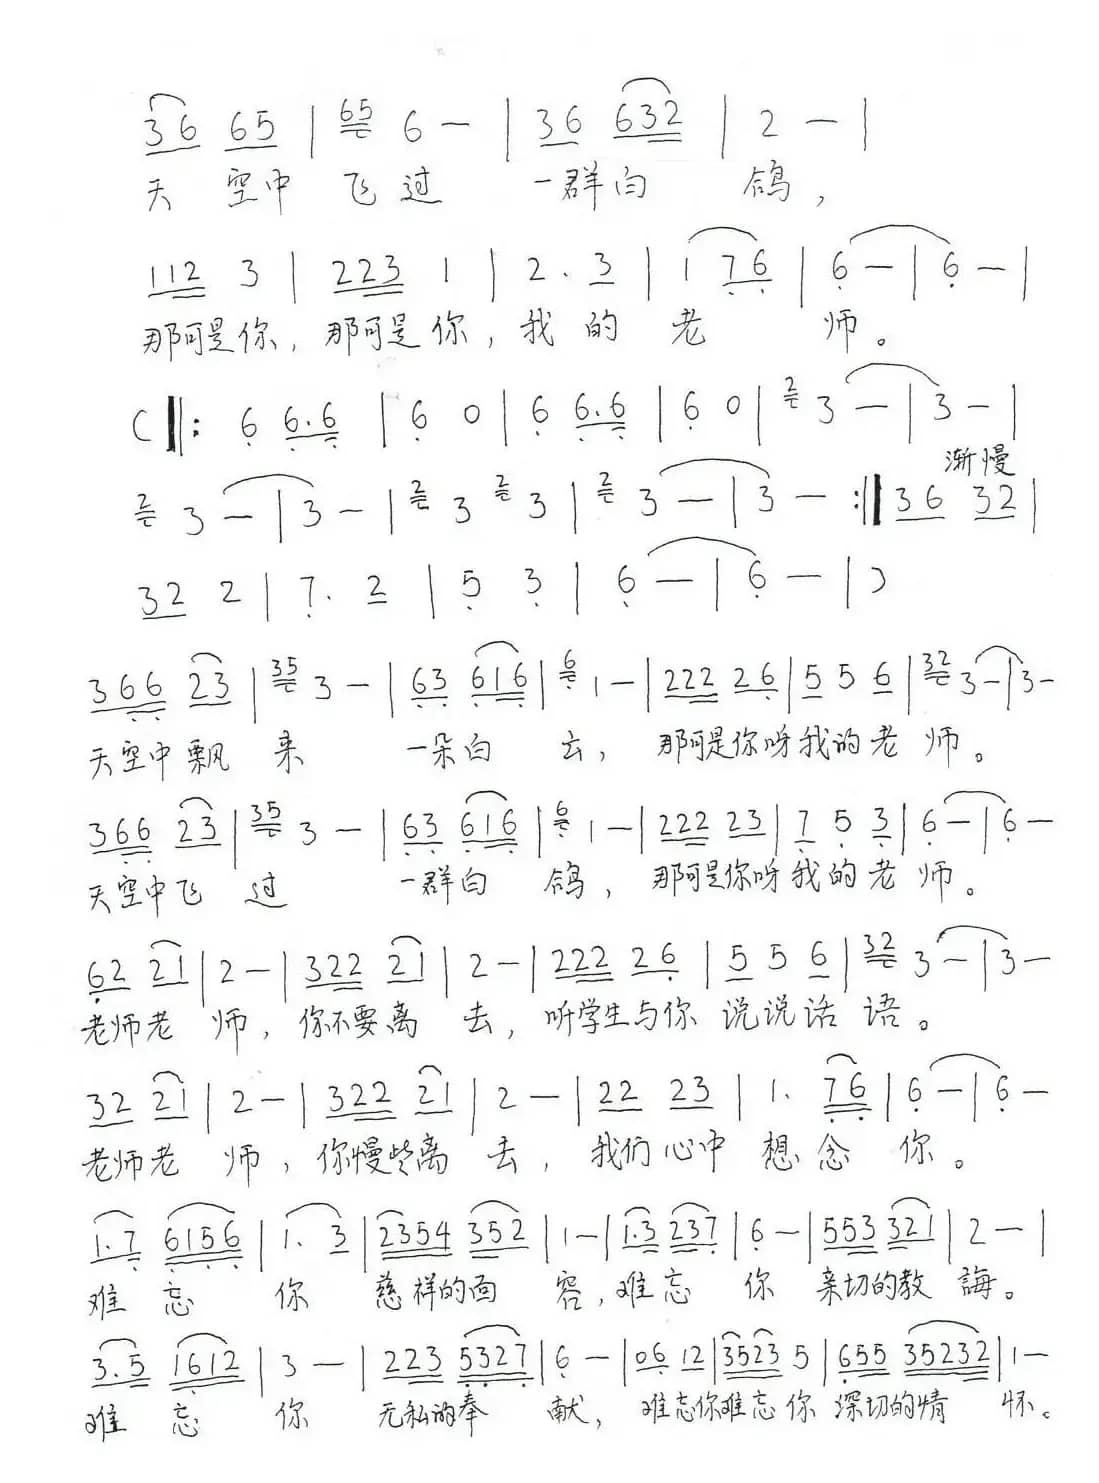 36 65 | 65 6 — | 36 632 | 2 — |
天 空中 飞过 一群白 鸽，
112 3 | 223 1 | 2 . 3 | 1 76 | 6 — | 6 — |
那可是你，那可是你，我的老师。
( ‖: 6 6.6 | 6 0 | 6 6.6 | 6 0 | 2 3 — | 3 — |
渐慢
2 3 — | 3 — | 2 3 2 3 | 2 3 — | 3 — :‖ 36 32 |
32 2 | 7. 2 | 5 3 | 6 — | 6 — | )
366 23 | 35 3 — | 63 616 | 6 1 — | 222 26 | 5 5 6 | 32 3 — | 3 —
天空中飘 来 一朵白 云，那可是你呀我的老 师。
366 23 | 35 3 — | 63 616 | 6 1 — | 222 23 | 7 5 3 | 6 — | 6 —
天空中飞 过 一群白 鸽，那可是你呀我的老 师。
62 21 | 2 — | 322 21 | 2 — | 222 26 | 5 5 6 | 32 3 — | 3 —
老师老 师，你不要离 去，听学生与你 说说话 语。
32 21 | 2 — | 322 21 | 2 — | 22 23 | 1. 76 | 6 — | 6 —
老师老 师，你慢些离 去，我们心中 想 念 你。
1.7 6156 | 1. 3 | 2354 352 | 1 — | 1.3 237 | 6 — | 553 321 | 2 — |
难 忘 你 慈祥的面 容，难忘 你 亲切的教 誨。
3.5 1612 | 3 — | 223 5327 | 6 — | 06 12 | 3523 5 | 655 35232 | 1 —
难 忘 你 无私的奉 献，难忘你难忘你 深切的情 怀。